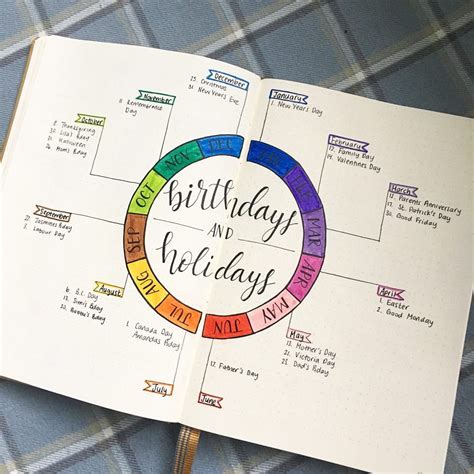 birthdays
AND
holidays
JAN
FEB
MAR
APR
MAY
JUN
JUL
AUG
SEP
OCT
NOV
DEC
January
1. New Year's Day
February
12. Family Day
14. Valentines Day
March
Parents Anniversary
17. St. Patrick's Day
30. Good Friday
April
1. Easter
2. Good Monday
May
13. Mother's Day
21. Victoria Day
Dad's Bday
June
17. Father's Day
July
1. Canada Day
Amanda's Bday
August
6. B.C. Day
Bday
Bday
September
Jasmine's Bday
3. Labour Day
October
8. Thanksgiving
Bday
31. Halloween
Mom's Bday
November
11. Remembrance
Day
December
25. Christmas
31. New Year's Eve